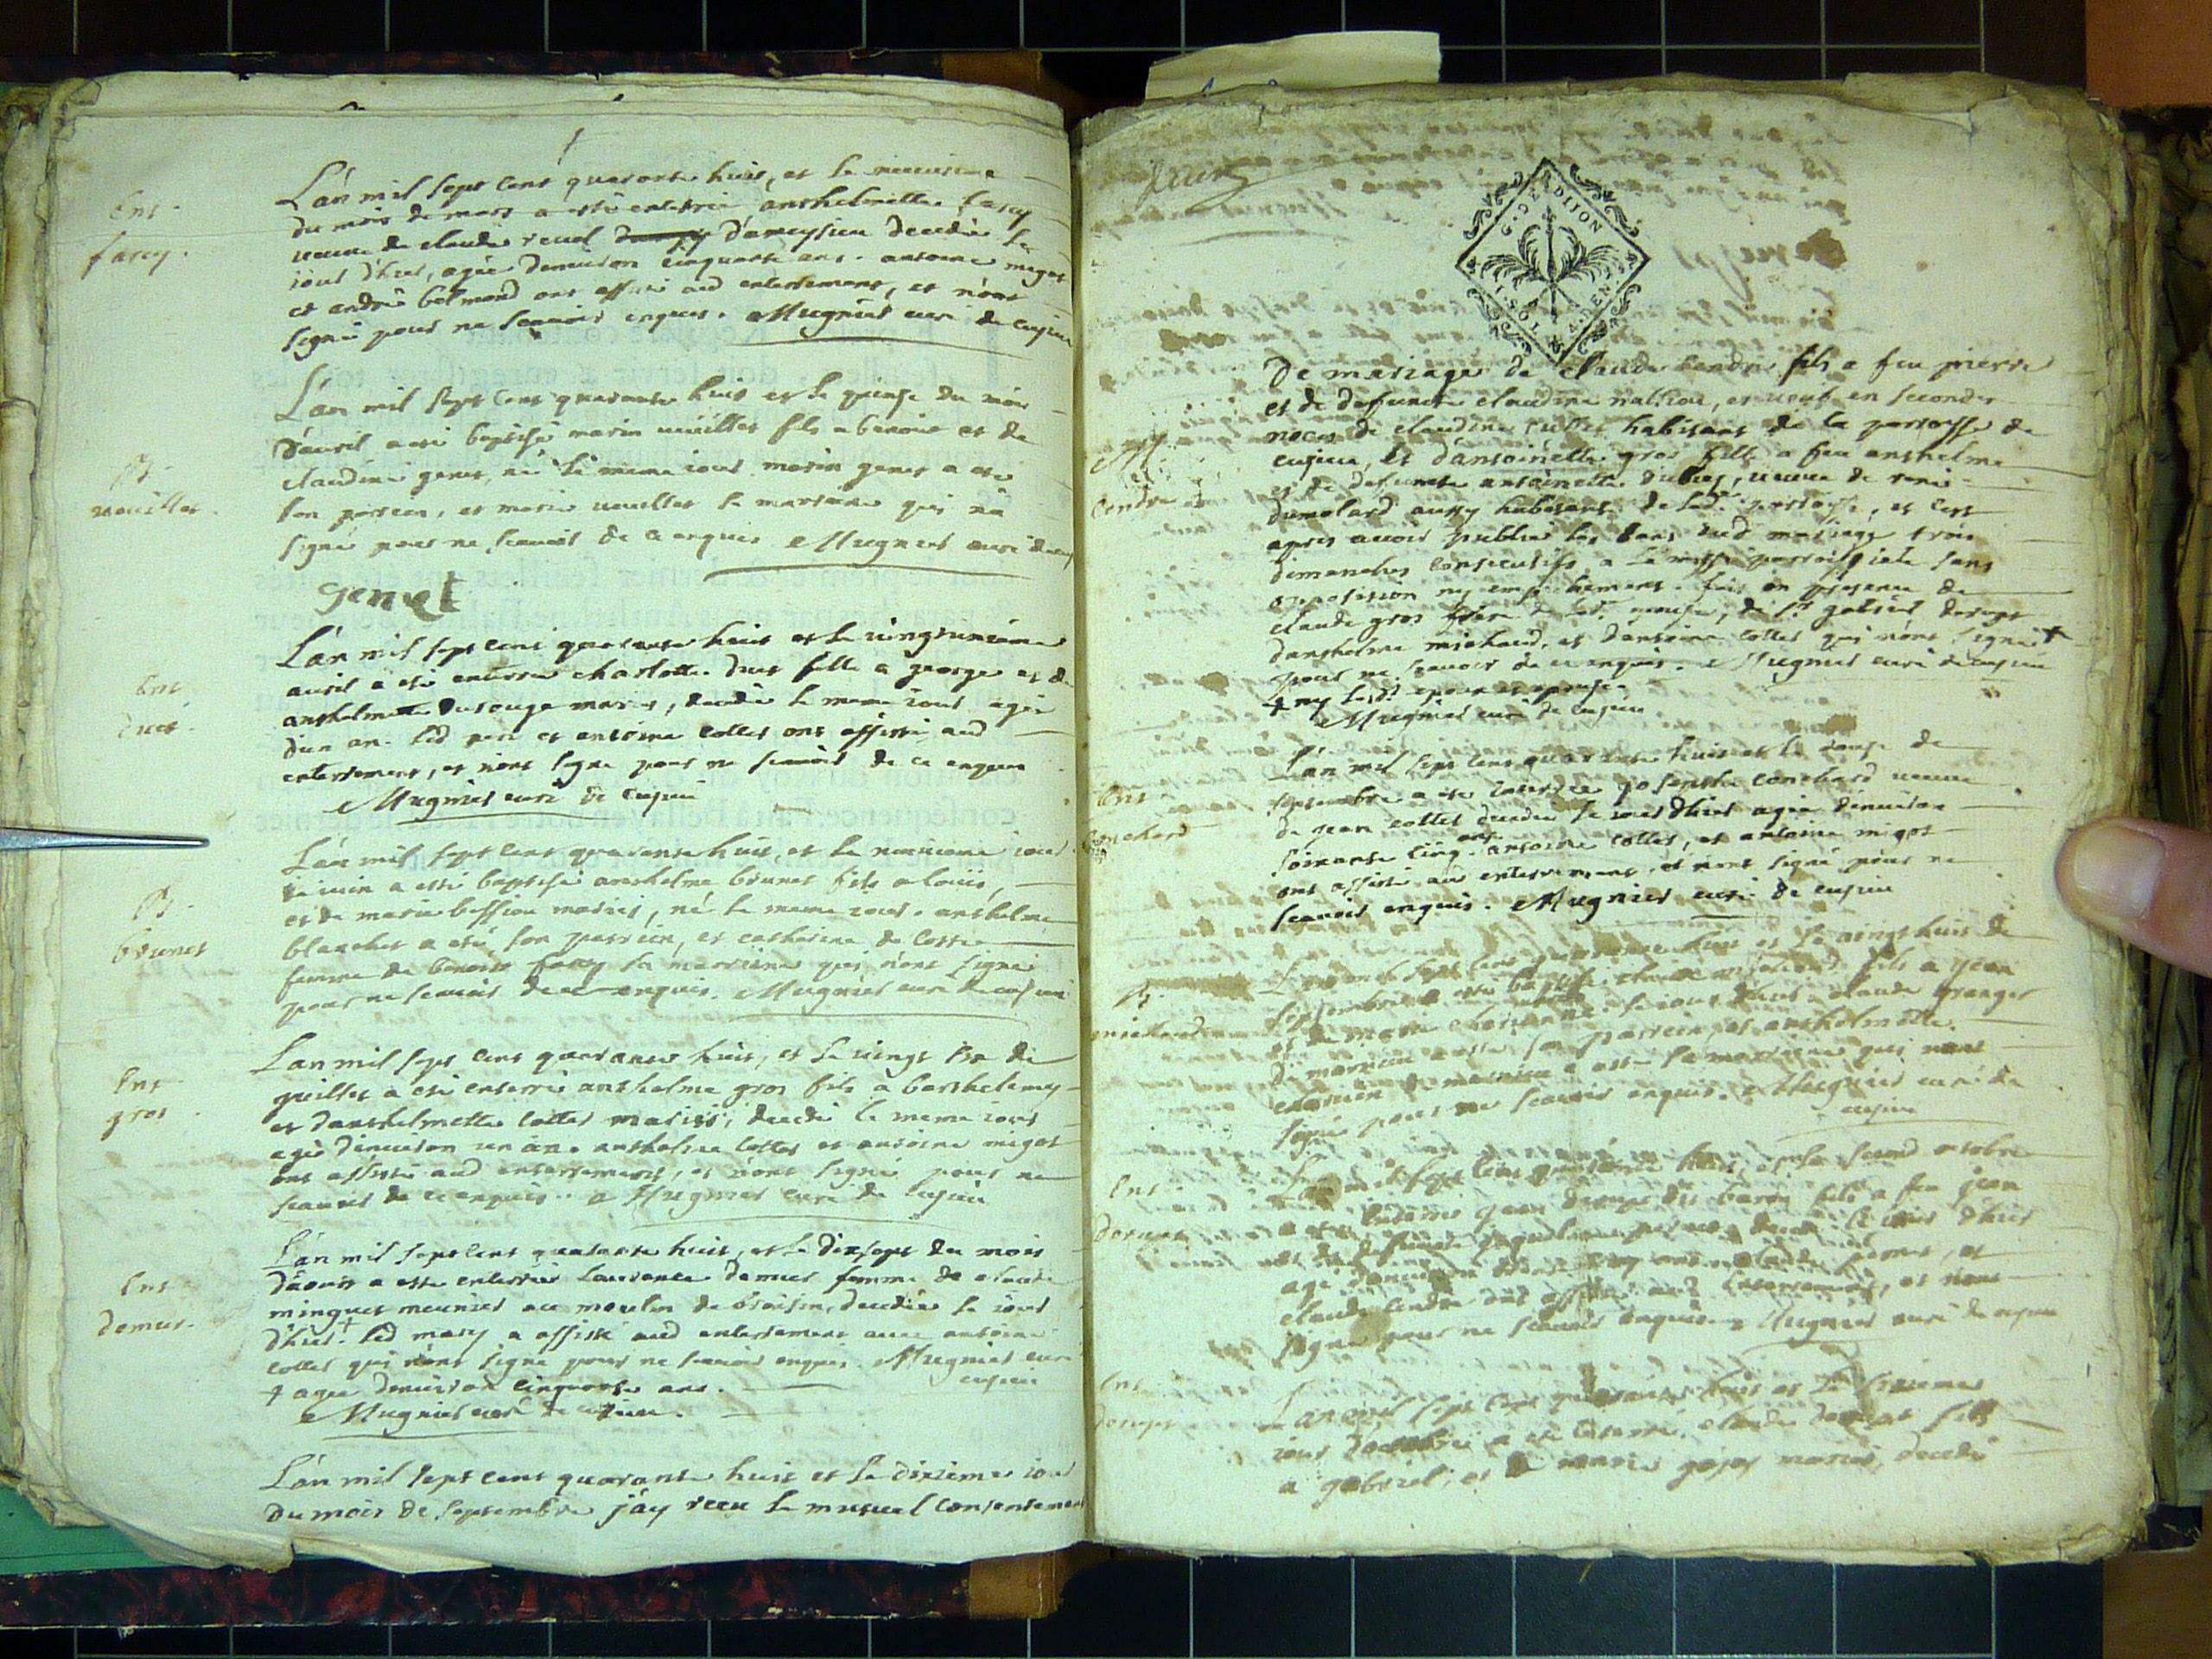 Ent.
farcy.
L'an mil sept cent quarante huit, et le neuvieme
du mois de mars a esté enterrée anthelmette farcy
veuve de claude revol d'ameysieu decedée le
jour d'hier, agée d'environ cinquante ans. antoine migot
et andré bolmond ont assisté aud enterrement, et n'ont
signé pour ne scavoir enquis. Mugnier curé de cuzieu
B.
vuillet.
L'an mil sept cent quarante huit et le quinze du mois
d'avril a été baptisé marin vuillet fils a benoit et de
claudine genet, né le meme jour marin genet a été
son parrein, et marie vuillet la marraine qui n'a
signé pour ne scavoir de ce enquis Mugnier curé de
genet
Ent.
duet.
L'an mil sept cent quarante huit et le vingtunieme
avril a été enterrée charlotte duet fille a george et de
anthelmette mariés, decedée le meme jour agée
d'un an. led pere et antoine collet ont assisté aud
enterrement, et n'ont signé pour ne scavoir de ce enquis
Mugnier curé de cuzieu
B.
brunet
L'an mil sept cent quarante huit, et le neuvieme jour
de juin a esté baptisé anthelme brunet fils a louis,
et de marie bession mariés, né le meme jour. anthelme
blanchet a été son parrein, et catherine de coste
femme de benoit farcy la marraine qui n'ont signé
pour ne scavoir de ce enquis. Mugnier curé de cuzieu
Ent.
gros.
L'an mil sept cent quarante huit, et le vingt de
jeuillet a été enterré anthelme gros fils a barthelemy
et d'anthelmette collet mariés, decedé le meme jour
agé d'environ un an. anthelme collet et antoine migot
ont assisté aud enterrement, et n'ont signé pour ne
scavoir de ce enquis. Mugnier curé de cuzieu
Ent.
demur.
L'an mil sept cent quarante huit, et le dixsept du mois
d'aoust a esté enterrée Laurence demur femme de claude
minguet meunier au moulin de braisin, decedée le jour
d'hier + led mary a assisté aud enterrement avec antoine
collet qui n'ont signé pour ne scavoir enquis. Mugnier curé
cuzieu
+ agée d'environ cinquante ans.
Mugnier curé de cuzieu.
L'an mil sept cent quarante huit et le dixieme jour
du mois de septembre j'ay receu le mutuel consentement
G. DE DIJON
De mariage de claude tendre fils a feu pierre
et de defuncte claudine et veuf en secondes
noces de claudine habitant de la parroisse de
cuzieu, et d'antoinette gros fille a feu anthelme
et de defuncte antoinette veuve de
dumolard aussy habitante de lad. parroisse, et c'est
apres avoir publié les bans dud mariage trois
dimanches consecutifs a la messe parroissiale sans
opposition ny empechement. fait en presence de
claude gros frere de lad. epouse, de gabriel
d'anthelme michaud, et d'antoine collet qui n'ont signé +
pour ne scavoir de ce enquis. Mugnier curé de cuzieu
+ ny lesd. epoux et epouse.
Mugnier curé de cuzieu
Ent.
L'an mil sept cent quarante huit et le douze de
septembre a été enterrée josephte conchard veuve
de jean collet decedée le jour d'hier agée d'environ
soixante cinq ans antoine collet, et antoine migot
ont assisté aud enterrement, et n'ont signé pour ne
scavoir enquis. Mugnier curé de cuzieu
B.
michaud
L'an mil sept cent quarante huit et le vingt huit de
septembre a été baptisé claude michaud fils a jean
et de marie né le jour d'hier. claude granger
de marnieu a esté son parrein, et anthelmette
de marnieu a esté la marraine qui n'ont
signé pour ne scavoir enquis. Mugnier curé de
cuzieu
Ent.
L'an mil sept cent quarante huit, et le second octobre
a été enterré jean dit baron fils a feu jean
et de defuncte decedé le jour d'hier
agé d'environ
claude tendre ont assisté aud enterrement, et n'ont
signé pour ne scavoir enquis. Mugnier curé de cuzieu
Ent.
L'an mil sept cent quarante huit et le sixieme
jour d'octobre a été enterré claude fils
a gabriel, et de marie mariés, decedé